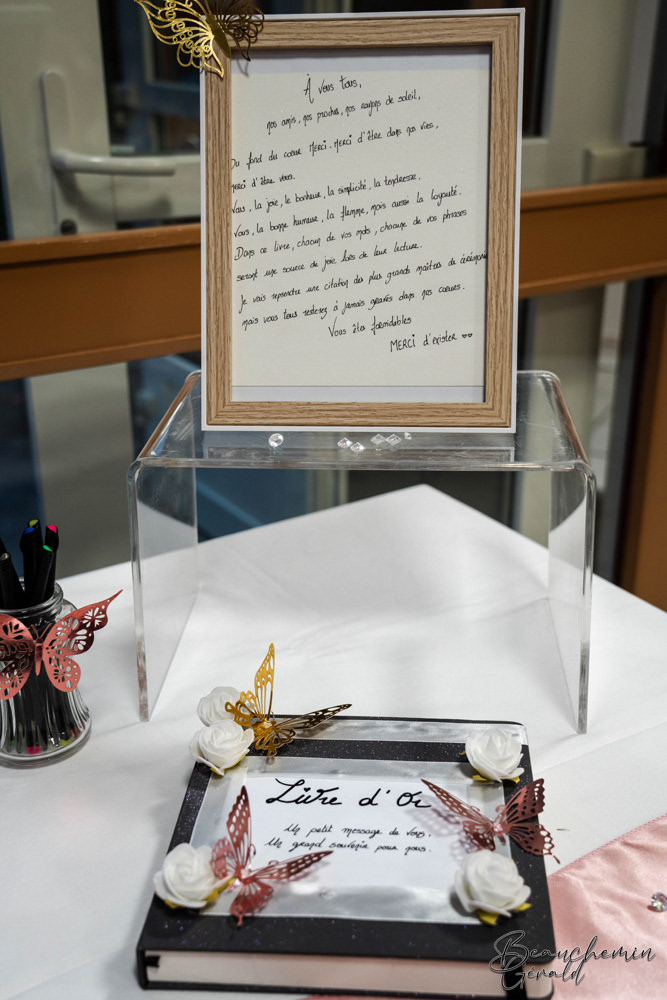 À vous tous,
nos amis, nos proches, nos rayons de soleil,
Du fond du cœur MERCI. Merci d'être dans nos vies,
merci d'être vous.
Vous, la joie, le bonheur, la simplicité, la tendresse.
Vous, la bonne humeur, la flemme, mais aussi la loyauté.
Dans ce livre, chacun de vos mots, chacune de vos phrases
seront une source de joie lors de leur lecture.
Je vais reprendre une citation des plus grands maîtres de cérémonie
mais vous tous resterez à jamais gravés dans nos cœurs.
Vous êtes formidables
MERCI d'exister ♥♥
Livre d'Or
Un petit message de vous,
Un grand souvenir pour nous.
Beauchemin
Gérald